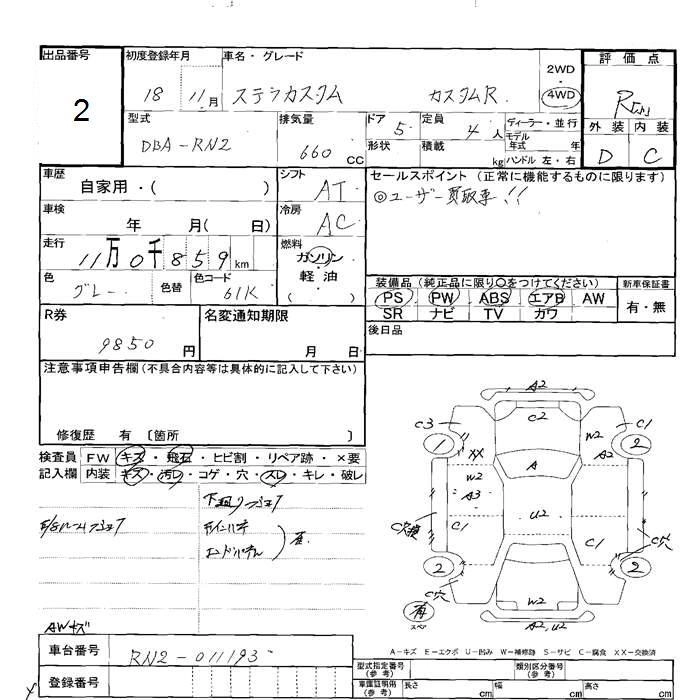 出品番号 初度登録年月 車名・グレード 評価点
2 18 11月 ステラカスタム カスタムR 2WD・4WD R
型式 排気量 ドア 定員 ディーラー・並行 外装 内装
DBA-RN2 660 CC 5 4 人 モデル年式 年 D C
形状 積載 kg ハンドル 左・右
車歴 シフト セールスポイント (正常に機能するものに限ります)
自家用・( ) AT ◎ユーザー買取車!!
車検 冷房
年 月( 日) AC
走行 燃料
11万0千859km ガソリン・軽油 ( )
色 色替 色コード 装備品(純正品に限り○をつけてください) 新車保証書
グレー 61K PS PW ABS エアB AW 有・無
SR ナビ TV カワ
R券 名変通知期限 後日品
9850 円 月 日
注意事項申告欄(不具合内容等は具体的に記入して下さい)
修復歴 有 〔箇所 〕
検査員 FW キズ・飛石・ヒビ割・リペア跡・×要
記入欄 内装 キズ・汚レ・コゲ・穴・スレ・キレ・破レ
A2
C3 C2 C1
1 XX W2 A2 2
W2 A
A3
C穴 C1 U2 C1 C穴
2 2
C穴 W2
有 スペア A2,U2
AWキズ
A-キズ E-エクボ U-凹み W-補修跡 S-サビ C-腐食 XX-交換済
車台番号 RN2-011193
型式指定番号(参考) 類別区分番号(参考)
登録番号
車庫証明用(参考) 長さ cm 幅 cm 高さ cm